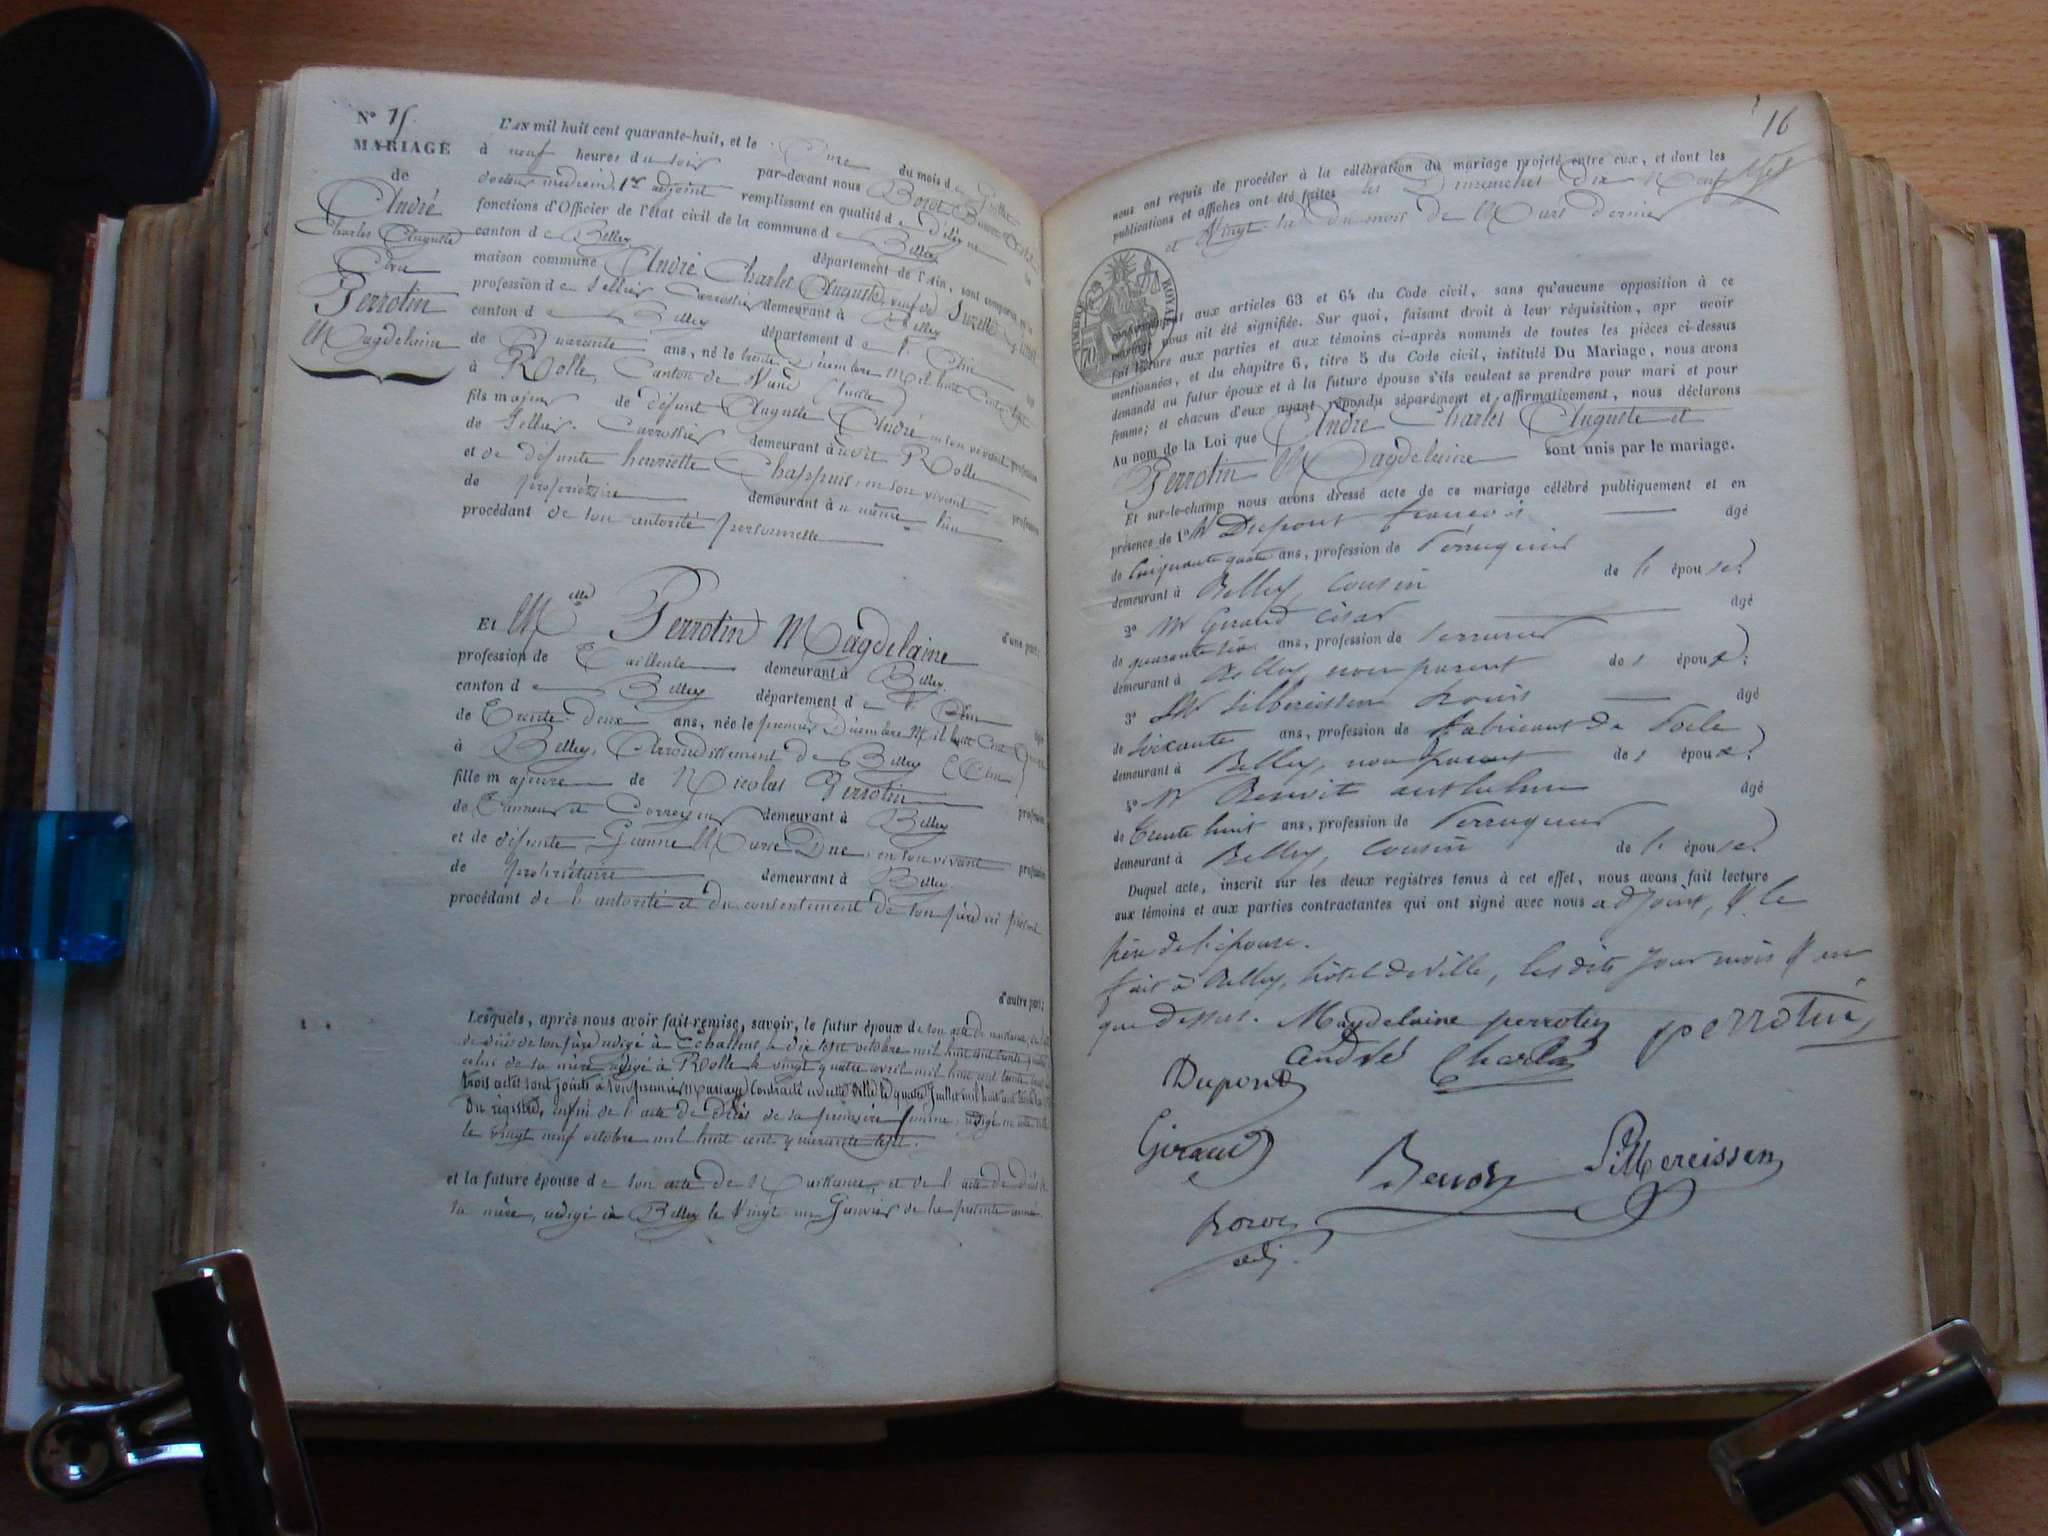 N° 15
MARIAGE
de
André
Charles Auguste
Perrotin
Magdelaine
L'AN mil huit cent quarante-huit, et le du mois d
à neuf heures du soir par-devant nous Borot
docteur medecin, 1er adjoint remplissant en qualité de
fonctions d'Officier de l'état civil de la commune de Belley
canton de Belley département de l'Ain, sont comparus en la
maison commune André Charles Auguste, veuf de Suzette
profession de Sellier Carrossier demeurant à Belley
canton de Belley département de l'Ain
de Quarante ans, né le trente Décembre mil huit cent sept
à Rolle, Canton de Vaud (Suisse)
fils majeur de défunt Auguste André en son vivant profession
de Sellier-Carrossier demeurant à dit Rolle
et de défunte henriette Chappuis, en son vivant profession
de propriétaire demeurant à u même lieu
procédant de son autorité personnelle
d'une part;
Et Melle Perrotin Magdelaine
profession de Tailleuse demeurant à Belley
canton de Belley département de l'Ain
de Trente-deux ans, née le premier Décembre mil huit cent
à Belley, Arrondissement de Belley (Ain)
fille majeure de Nicolas Perrotin profession
de Tanneur et Corroyeur demeurant à Belley
et de défunte Jeanne Marie Duc, en son vivant profession
de propriétaire demeurant à Belley
procédant de l'autorité et du consentement de son père ici présent
d'autre part;
Lesquels, après nous avoir fait remise, savoir, le futur époux de son acte de naissance, de
de décès de son père rédigé à Echallens le dix sept octobre mil huit cent trente
celui de sa mère rédigé à Rolle le vingt quatre avril mil huit cent trente
trois actes sont joints à son premier mariage contracté en cette ville le quatre Juillet mil huit cent
du registre, enfin de l'acte de Décès de sa première femme, rédigé en cette ville
le vingt neuf octobre mil huit cent quarante sept.
et la future épouse de son acte de Naissance, et de l'acte de décès de
sa mère, rédigé à Belley le Vingt un Janvier de la présente année
16
nous ont requis de procéder à la célébration du mariage projeté entre eux, et dont les
publications et affiches ont été faites les Dimanches dix Neuf
et Vingt six du mois de Mars dernier
TIMBRE ROYAL
70
conformément aux articles 63 et 64 du Code civil, sans qu'aucune opposition à ce
mariage nous ait été signifiée. Sur quoi, faisant droit à leur réquisition, apr avoir
fait lecture aux parties et aux témoins ci-après nommés de toutes les pièces ci-dessus
mentionnées, et du chapitre 6, titre 5 du Code civil, intitulé Du Mariage, nous avons
demandé au futur époux et à la future épouse s'ils veulent se prendre pour mari et pour
femme; et chacun d'eux ayant répondu séparément et affirmativement, nous déclarons
Au nom de la Loi que André Charles Auguste et
Perrotin Magdelaine sont unis par le mariage.
Et sur-le-champ nous avons dressé acte de ce mariage célébré publiquement et en
présence de 1° Mr Dupont francois âgé
de Cinquante quatre ans, profession de Perruquier
demeurant à Belley, cousin de l' épouse;
2° Mr Giraud César âgé
de quarante six ans, profession de Serrurier
demeurant à Belley, non parent de s époux;
3° Mr Silbereissen Louis âgé
de Soixante ans, profession de fabricant de Toile
demeurant à Belley, non parent de s époux;
4° Mr Benoit anthelme âgé
de Trente huit ans, profession de Perruquier
demeurant à Belley, Cousin de l' épouse.
Duquel acte, inscrit sur les deux registres tenus à cet effet, nous avons fait lecture
aux témoins et aux parties contractantes qui ont signé avec nous adjoint, & le
père de l'épouse.
fait à Belley, hôtel de Ville, les dits jour mois & an
que dessus. Magdelaine perrotin perrotin
Dupont andré Charles
Giraud Benoit Silbereissen
Borot
adj.